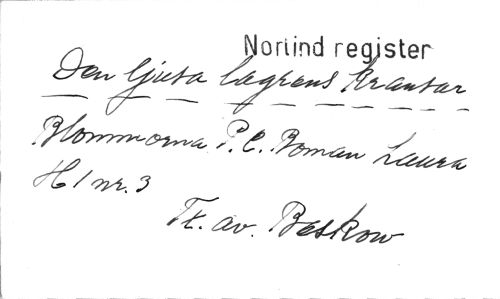 Norlind register
Den ljusa lagrens krantar
Blommorna P. C. Boman Laura
H1 nr. 3
Tt. av. Beskow